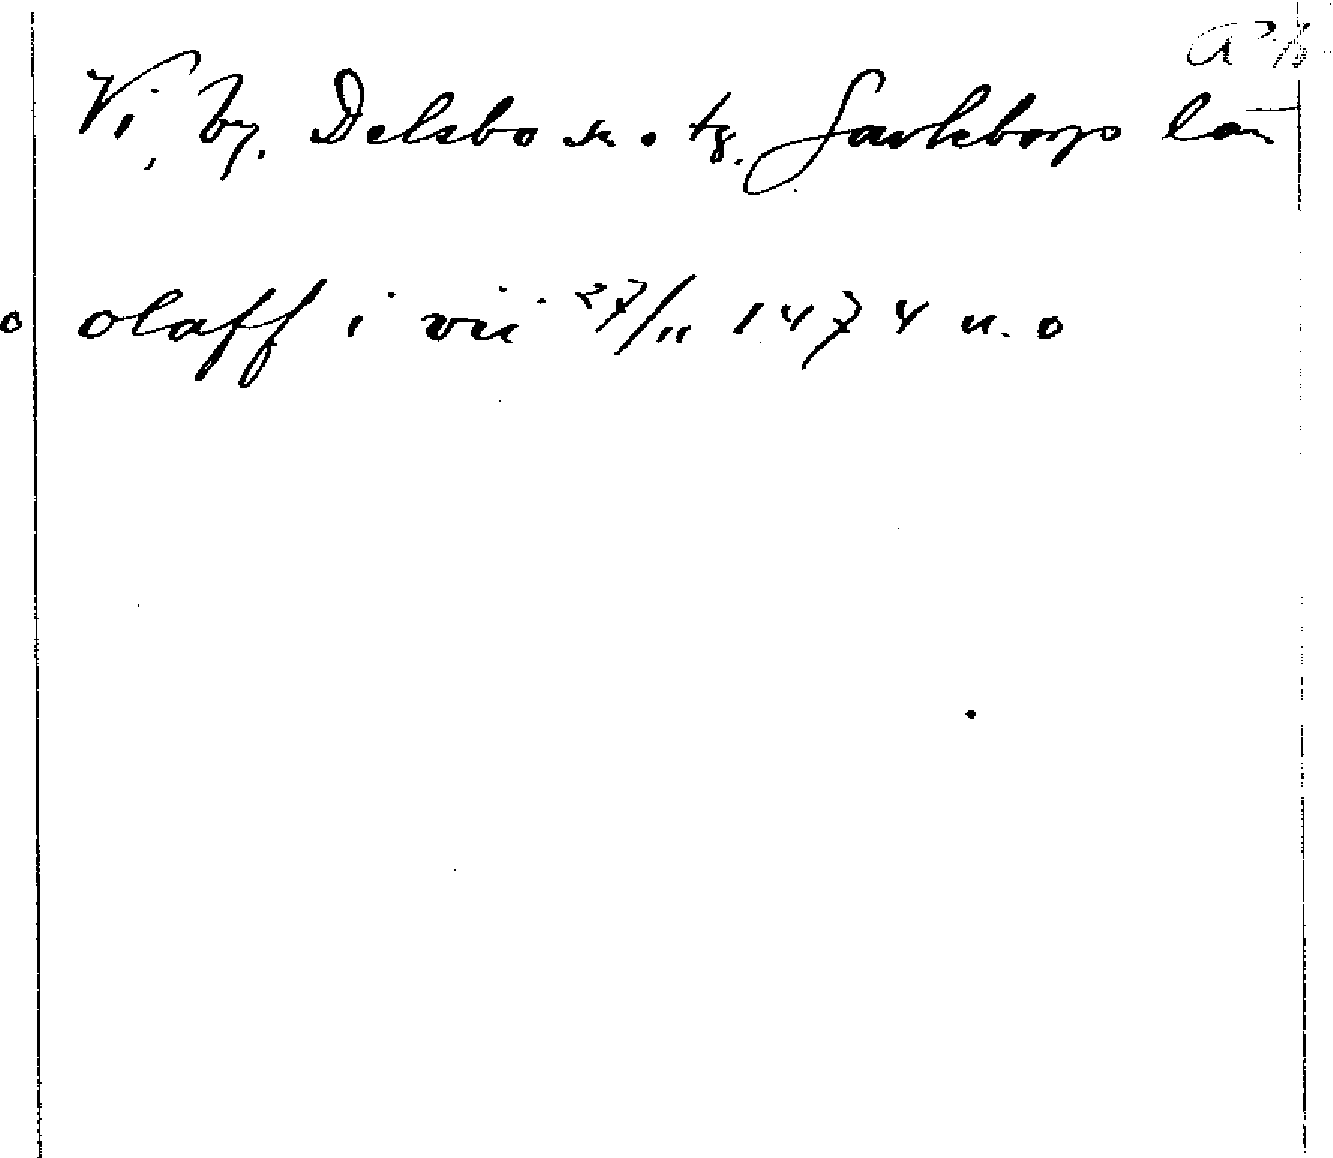 Vi, by. Delsbo sn o tg. Gävleborgs län
olaff i vii 27/11 1474 u. o